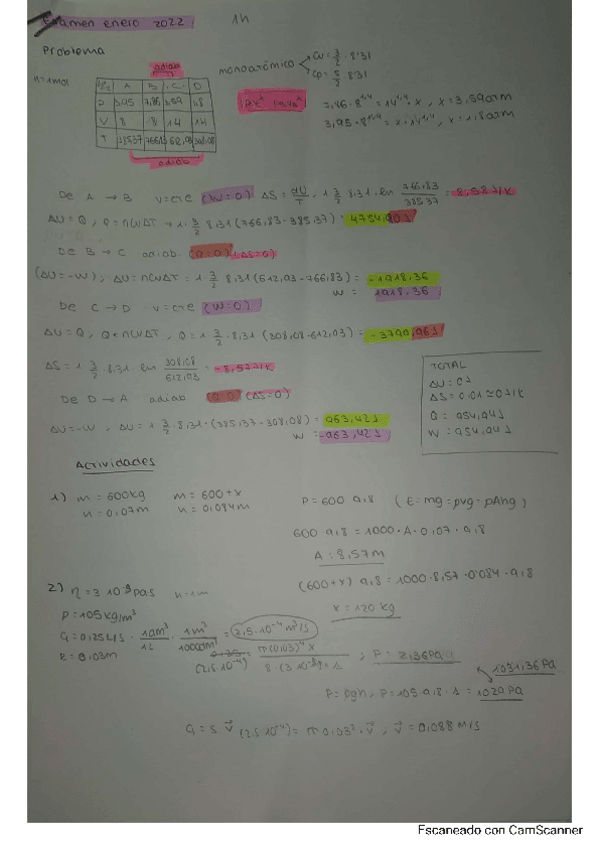 Examen enero 2022 1h
Problema
n=1mol
adiab
A B C D
P 3,95 7,86 3,59 1,8
V 8 8 14 14
T 385'37 766'83 612,93 308,08
adiab
monoatómico
Cv = 3/2 · 8'31
Cp = 5/2 8'31
7,86 · 8^1,4 = 14^1,4 · x, x = 3,59 atm
3,95 · 8^1,4 = x · 14^1,4, x = 1,80 atm
De A → B v = cte (W=0) ΔS = dU/T, 1 3/2 8,31 · ln 766,83/385,37 = 8,57J/K
ΔU = Q, Q = nCvΔT → 1 · 3/2 · 8,31 (766,83 - 385,37) = 4754,90J
De B → C adiab. (Q=0) (ΔS=0)
(ΔU=-W), ΔU = nCvΔT = 1 · 3/2 · 8,31 (612,93 - 766,83) = -1918,36
W = 1918,36
De C → D v = cte (W=0)
ΔU = Q, Q = nCvΔT, Q = 1 · 3/2 · 8,31 (308,08 - 612,93) = -3799,96J
ΔS = 1 3/2 · 8,31 · ln 308,08/612,93 = -8,57J/K
De D → A adiab (Q=0) (ΔS=0)
ΔU = -W, ΔU = 1 3/2 · 8,31 · (385,37 - 308,08) = 963,42J
W = -963,42J
TOTAL
ΔU = 0J
ΔS = 0,01 ≃ 0J/K
Q = 954,94J
W = 954,94J
Actividades
1) m = 600kg m = 600+x
h = 0,07m h = 0,084m
P = 600 · 9,8 (E = mg = ρvg = ρAhg)
600 · 9,8 = 1000 · A · 0,07 · 9,8
A = 8,57m
(600+x) 9,8 = 1000 · 8,57 · 0'084 · 9,8
x = 120 kg
2) η = 3 10^-3 Pas h=1m
ρ = 105 kg/m³
G = 0,25L/s · 1dm³/1L · 1m³/1000dm³ = 2,5 · 10^-4 m³/s
R = 0,03m
(2,5 · 10^-4) = π(0,03)^4 x / 8 · (3 10^-3) · 1, P = 2,36Pa
1031,36 Pa
P = ρgh, P = 105 · 9,8 · 1 = 1029 Pa
G = S v⃗ (2,5 10^-4) = π 0,03² · v⃗, v⃗ = 0,088 m/s
Escaneado con CamScanner